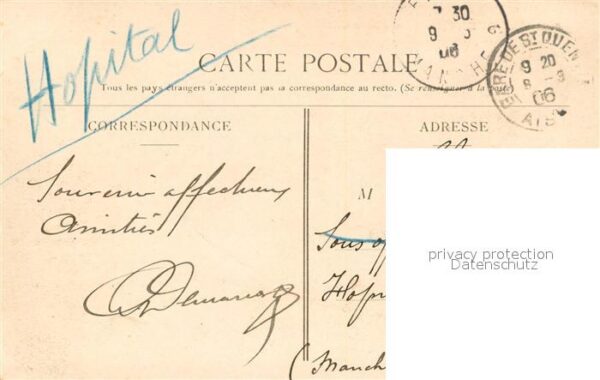 Hopital
7 30
9
06
MANCHE
GARE DE ST QUENTIN
9 20
8 - 9
06
AIS
CARTE POSTALE
Tous les pays étrangers n'acceptent pas la correspondance au recto. (Se renseigner à la poste)
CORRESPONDANCE
ADRESSE
M
Souvenir affectueux
Amitiés
Sous
Hop
(Manch
privacy protection
Datenschutz